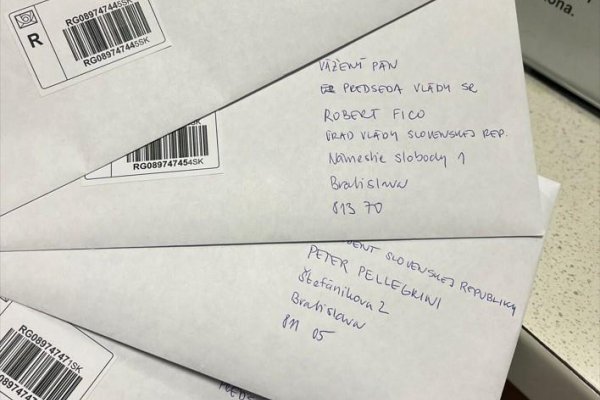 kona.
RG089747445SK
R
RG089747445SK
RG089747454SK
VÁŽENÝ PÁN
PREDSEDA VLÁDY SR
ROBERT FICO
ÚRAD VLÁDY SLOVENSKEJ REP.
Námestie slobody 1
Bratislava
813 70
SLOVENSKEJ REPUBLIKY
PETER PELLEGRINI
Štefánikova 2
Bratislava
811 05
RG089747471SK
RG089747471SK